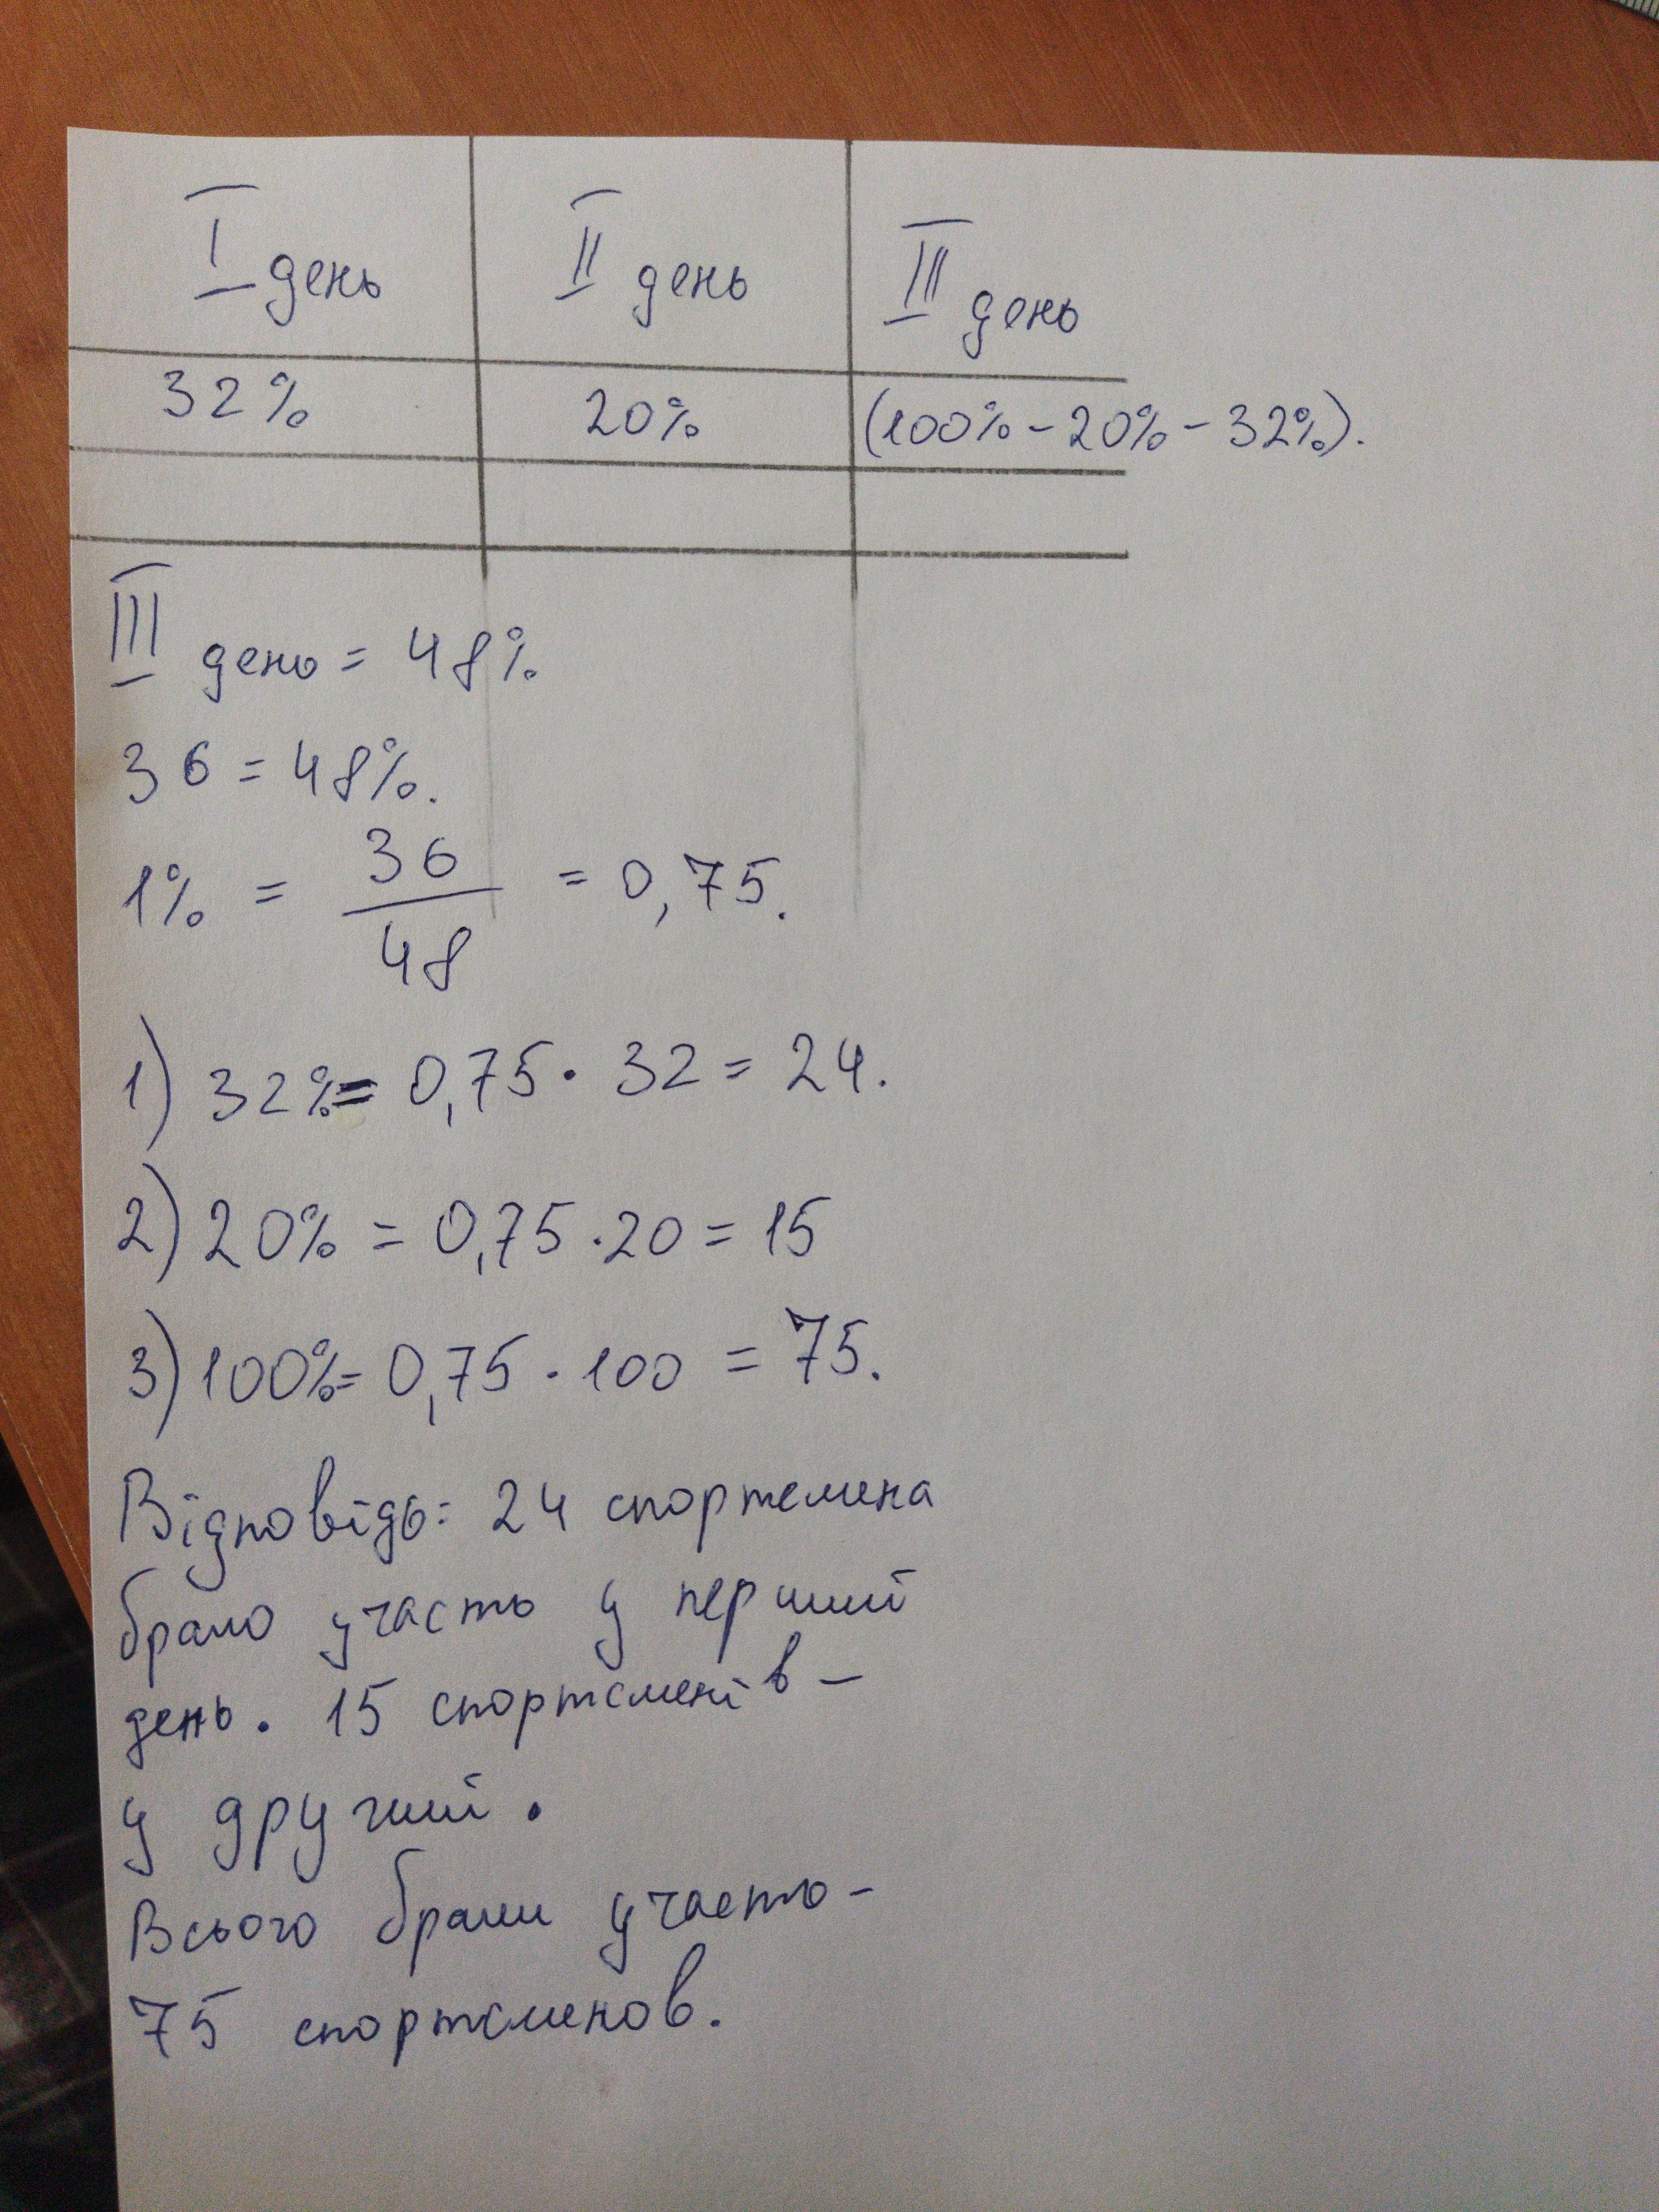 I день II день III день
32% 20% (100% - 20% - 32%).
III день = 48%
36 = 48%.
1% = 36/48 = 0,75.
1) 32% = 0,75 · 32 = 24.
2) 20% = 0,75 · 20 = 15
3) 100% = 0,75 · 100 = 75.
Відповідь: 24 спортсмена
брало участь у перший
день. 15 спортсменів -
у другий.
Всього брали участь -
75 спортсменов.